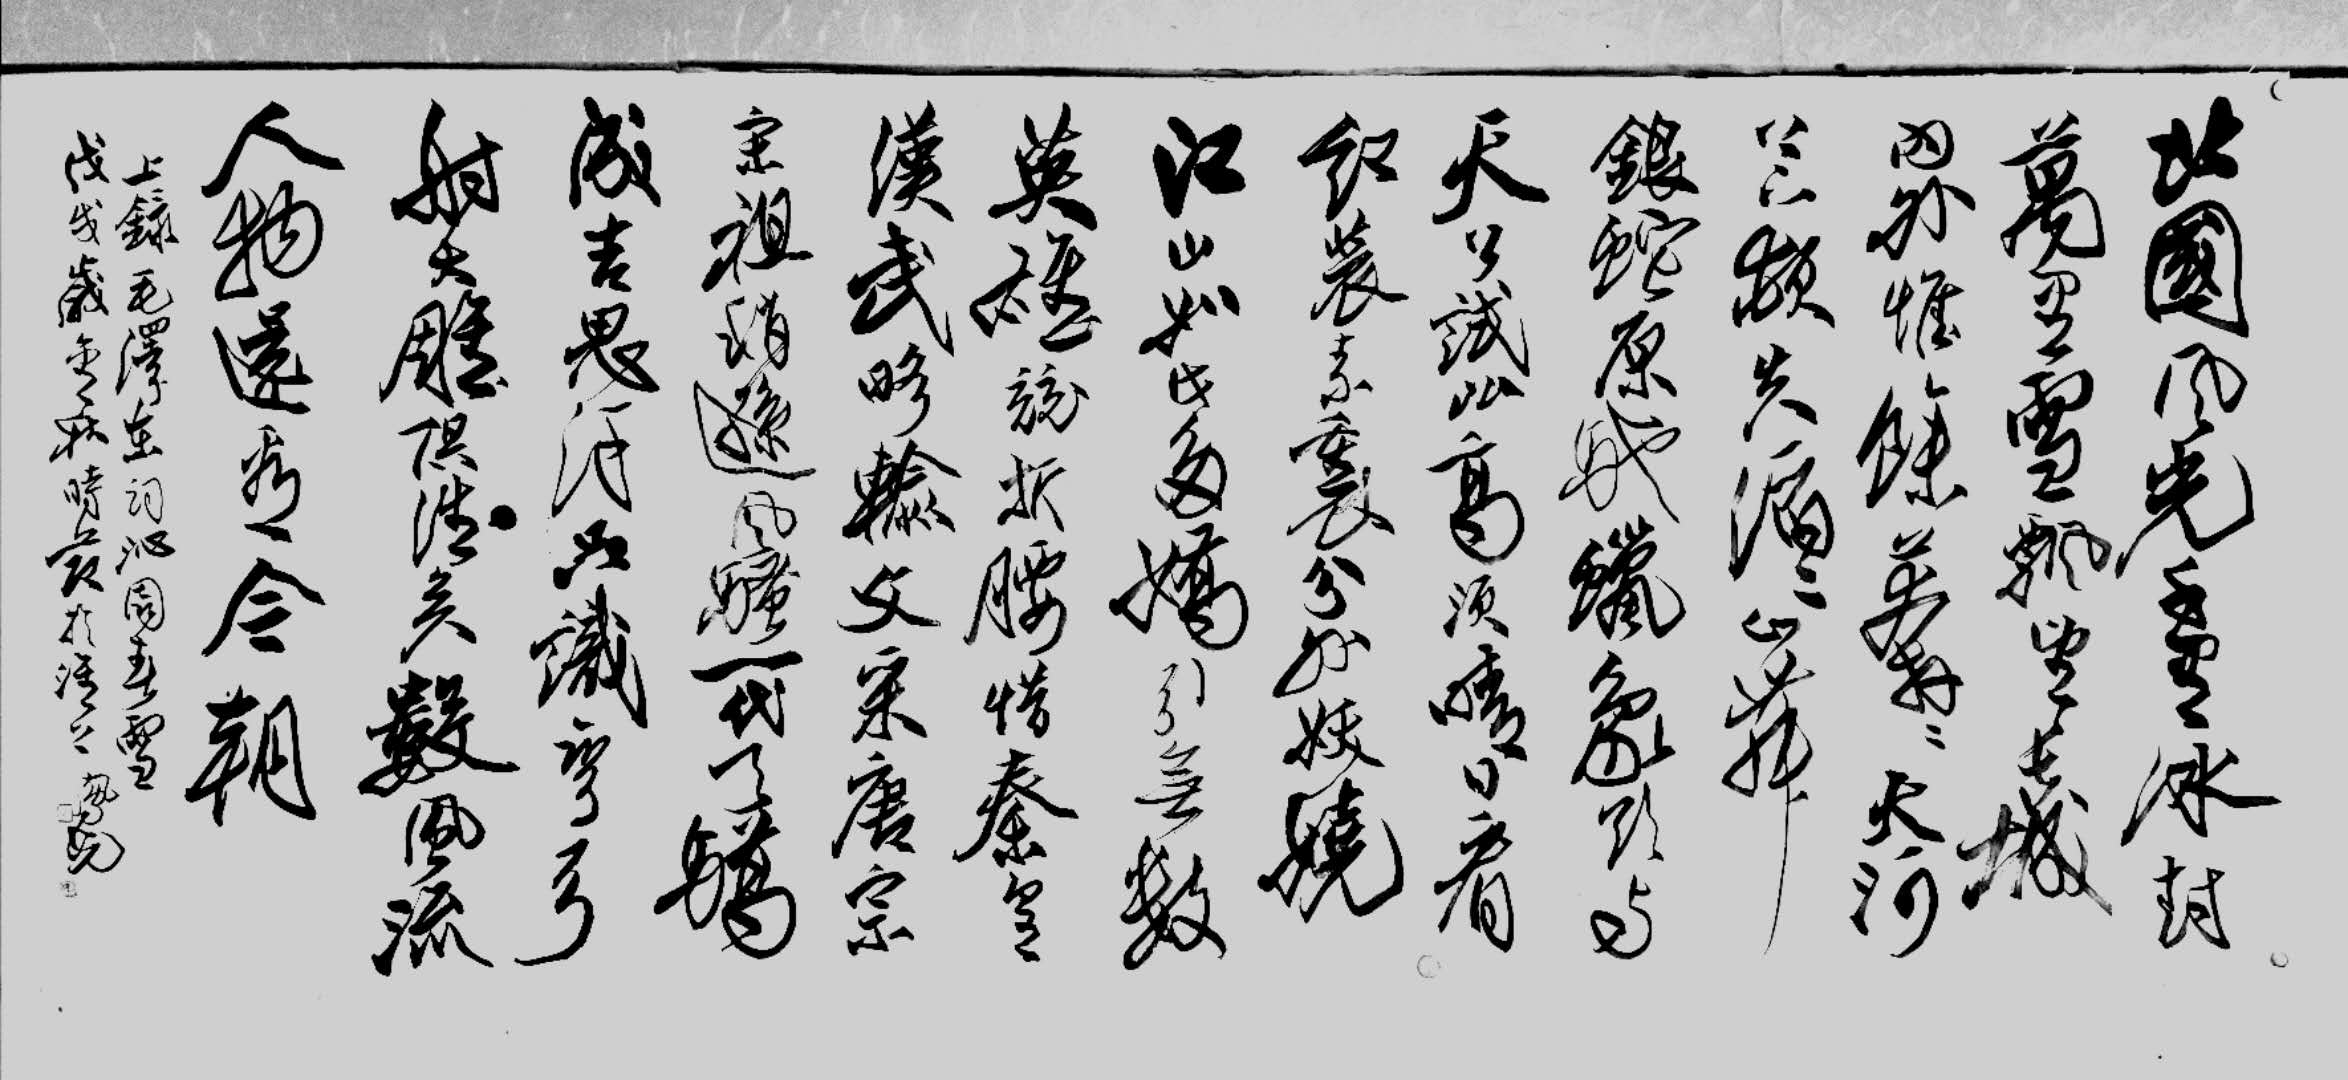 北國风光千里冰封
萬里雪飄望長城
內外惟餘莽々大河
上下頓失滔々山舞
銀蛇原馳蠟象欲與
天公試比高須晴日看
紅裝素裹分外妖嬈
江山如此多嬌引無數
英雄競折腰惜秦皇
漢武略輸文采唐宗
宋祖稍遜风騷一代天驕
成吉思汗只識彎弓
射大雕俱往矣數風流
人物還看今朝
上錄毛澤東詞沁園春雪
戊戌歲金秋時